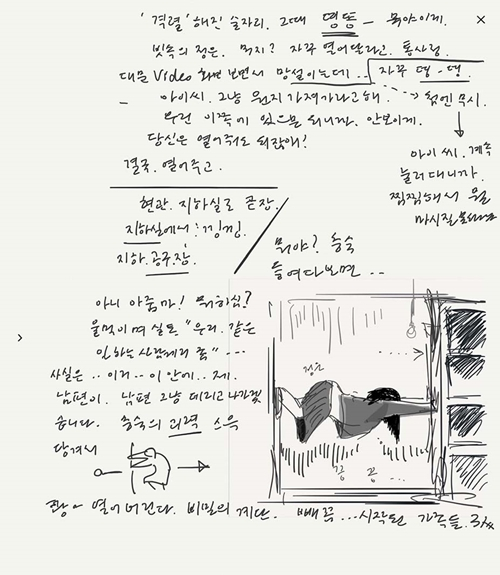 '격렬'해진 술자리. 그때 띵똥 — 뭐야 이게. ×
빗속의 정은. 뭐지? 자꾸 열어달라고. 통사정.
대문 Video 화면 보면서 망설이는데.. 자꾸 띵-띵.
— 아이씨. 그냥 뭔지 가져가라고 해. → 첨엔 무시.
이쪽에 있으면 되니까. 안보이게.
당신은 열어줘도 되잖애!
결국. 열어주고.
아이씨. 계속
눌러대니까.
찜찜해서 뭘
마시질
현관. 지하실로 곧장.
지하실에서 낑낑.
지하.공구.장.
뭐야? 충숙
들여다보면 ..
아니 아줌마! 뭐하심?
울먹이며 실토 "우리. 같은
일하는 사람끼리 좀" ---
사실은 .. 이거 .. 이 안에.. 제.
남편이. 남편 그냥 데리고 나가겠
습니다. 충숙의 괴력 스윽
당겨서
정은
끙 끙 ..
쾅~ 열어버린다. 비밀의 계단. 빼꼭 ...시작된 가족들.